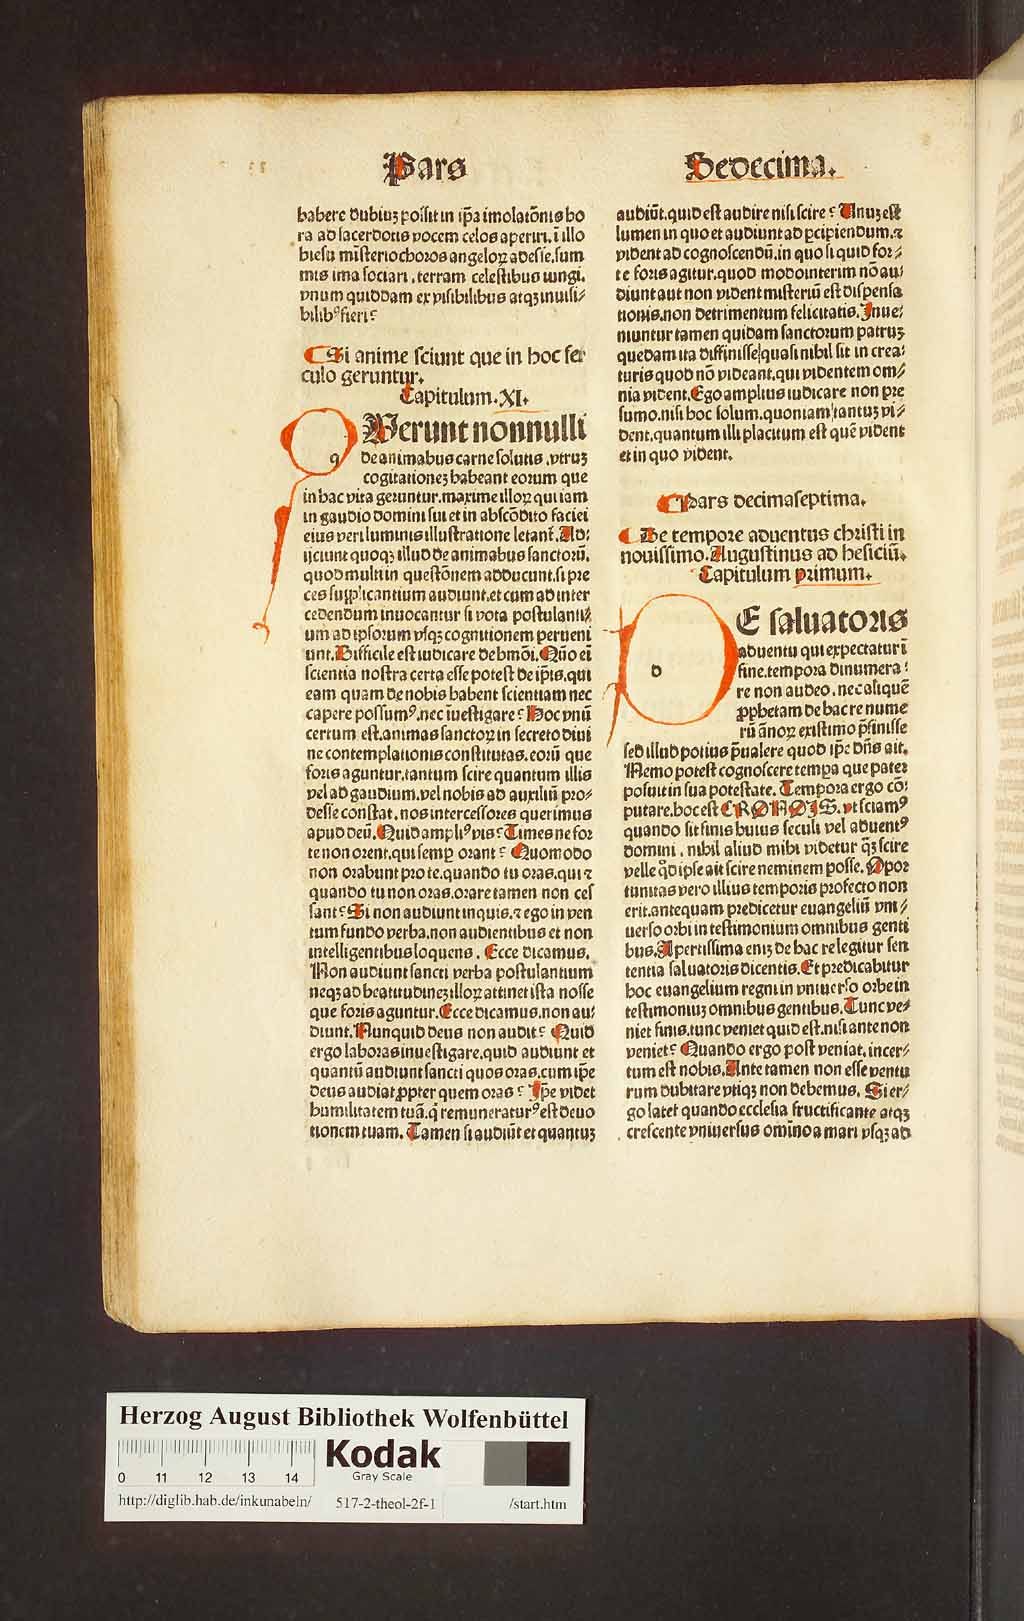 Pars
Sedecima.
habere dubiuꝫ possit in ip̄a imolatōnis ho
ra ad sacerdotis vocem celos aperiri. ī illo
hiesu mīsterio choros angeloꝝ adesse. sum
mis ima sociari. terram celestibus iungi.
vnum quiddam ex visibilibus atqꝫ inuisi⸗
bilibꝰ fieri?
Si anime sciunt que in hoc se⸗
culo geruntur.
Capitulum. XI.
q
Verunt nonnulli
de animabus carne solutis. vtruꝫ
cogitationeꝫ habeant eorum que
in hac vita geruntur. maxime illoꝝ qui iam
in gaudio domini sui et in abscōdito faciei
eius veri luminis illustratione letant̄. Ad⸗
ijciunt quoqꝫ illud de animabus sanctorū.
quod multi in questōnem adducunt. si pre
ces supplicantium audiunt. et cum ad inter
cedendum inuocantur si vota postulanti⸗
um ad ipsorum vsqꝫ cognitionem perueni
unt. Difficile est iudicare de hmōi. Qn̄o eī
scientia nostra certa esse potest de ip̄is. qui
eam quam de nobis habent scientiam nec
capere possumꝰ. nec īuestigare? Hoc vnū
certum est. animas sanctoꝝ in secreto diui
ne contemplationis constitutas. eorū que
foris aguntur. tantum scire quantum illis
vel ad gaudium. vel nobis ad auxiliū pro⸗
desse constat. nos intercessores querimus
apud deū. Quid ampliꝰ vis? Times ne for
te non orent. qui semꝑ orant? Quomodo
non orabunt pro te. quando tu oras. qui ⁊
quando tu non oras. orare tamen non ces
sant? Si non audiunt inquis. ⁊ ego in ven
tum fundo verba. non audientibus et non
intelligentibus loquens. Ecce dicamus.
Non audiunt sancti verba postulantium
neqꝫ ad beatitudineꝫ illoꝝ attinet ista nosse
que foris aguntur. Ecce dicamus. non au⸗
diunt. Nunquid deus non audit? Quid
ergo laboras inuestigare. quid audiunt et
quantū audiunt sancti quos oras. cum ip̄e
deus audiat ꝓpter quem oras? Ip̄e videt
humilitatem tuā. q̄ remuneraturꝰ est deuo
tionem tuam. Tamen si audiūt et quantuꝫ
audiūt. quid est audire nisi scire? Vnuꝫ est
lumen in quo et audiunt ad ꝑcipiendum. ⁊
vident ad cognoscendū. in quo si quid for⸗
te foris agitur. quod modo interim nō au⸗
diunt aut non vident misteriū est dispensa
tionis. non detrimentum felicitatis. Inue⸗
niuntur tamen quidam sanctorum patruꝫ
quedam ita diffinisse quasi nihil sit in crea⸗
turis quod nō videant. qui videntem om⸗
nia vident. Ego amplius iudicare non pre
sumo. nisi hoc solum. quoniam tantuꝫ vi⸗
dent. quantum illi placitum est quē vident
et in quo vident.
Pars decimaseptima.
De tempore aduentus christi in
nouissimo. Augustinus ad hesiciū.
Capitulum primum.
d
E saluatoris
aduentu qui expectatur ī
fine. tempora dinumera⸗
re non audeo. nec aliquē
ꝓphetam de hac re nume
rū ānoꝝ existimo p̄finisse
sed illud potius p̄ualere quod ip̄e dn̄s ait.
Nemo potest cognoscere tempora que pater
posuit in sua potestate. Tempora ergo cō⸗
putare. hoc est CRONOIS. vt sciamꝰ
quando sit finis huius seculi vel aduentꝰ
domini. nihil aliud mihi videtur q̄ꝫ scire
velle qd̄ ipse ait scire neminem posse. Opor
tunitas vero illius temporis profecto non
erit. antequam predicetur euangeliū vni⸗
uerso orbi in testimonium omnibus genti
bus. Apertissima eniꝫ de hac re legitur sen
tentia saluatoris dicentis. Et predicabitur
hoc euangelium regni in vniuerso orbe in
testimoniuꝫ omnibus gentibus. Tunc ve⸗
niet finis. tunc veniet quid est. nisi ante non
veniet? Quando ergo post veniat. incer⸗
tum est nobis. Ante tamen non esse ventu
rum dubitare vtiqꝫ non debemus. Si er⸗
go latet quando ecclesia fructificante atqꝫ
crescente vniuersus omīno a mari vsqꝫ ad
Herzog August Bibliothek Wolfenbüttel
0 11 12 13 14
Kodak
Gray Scale
http://diglib.hab.de/inkunabeln/ 517-2-theol-2f-1 /start.htm